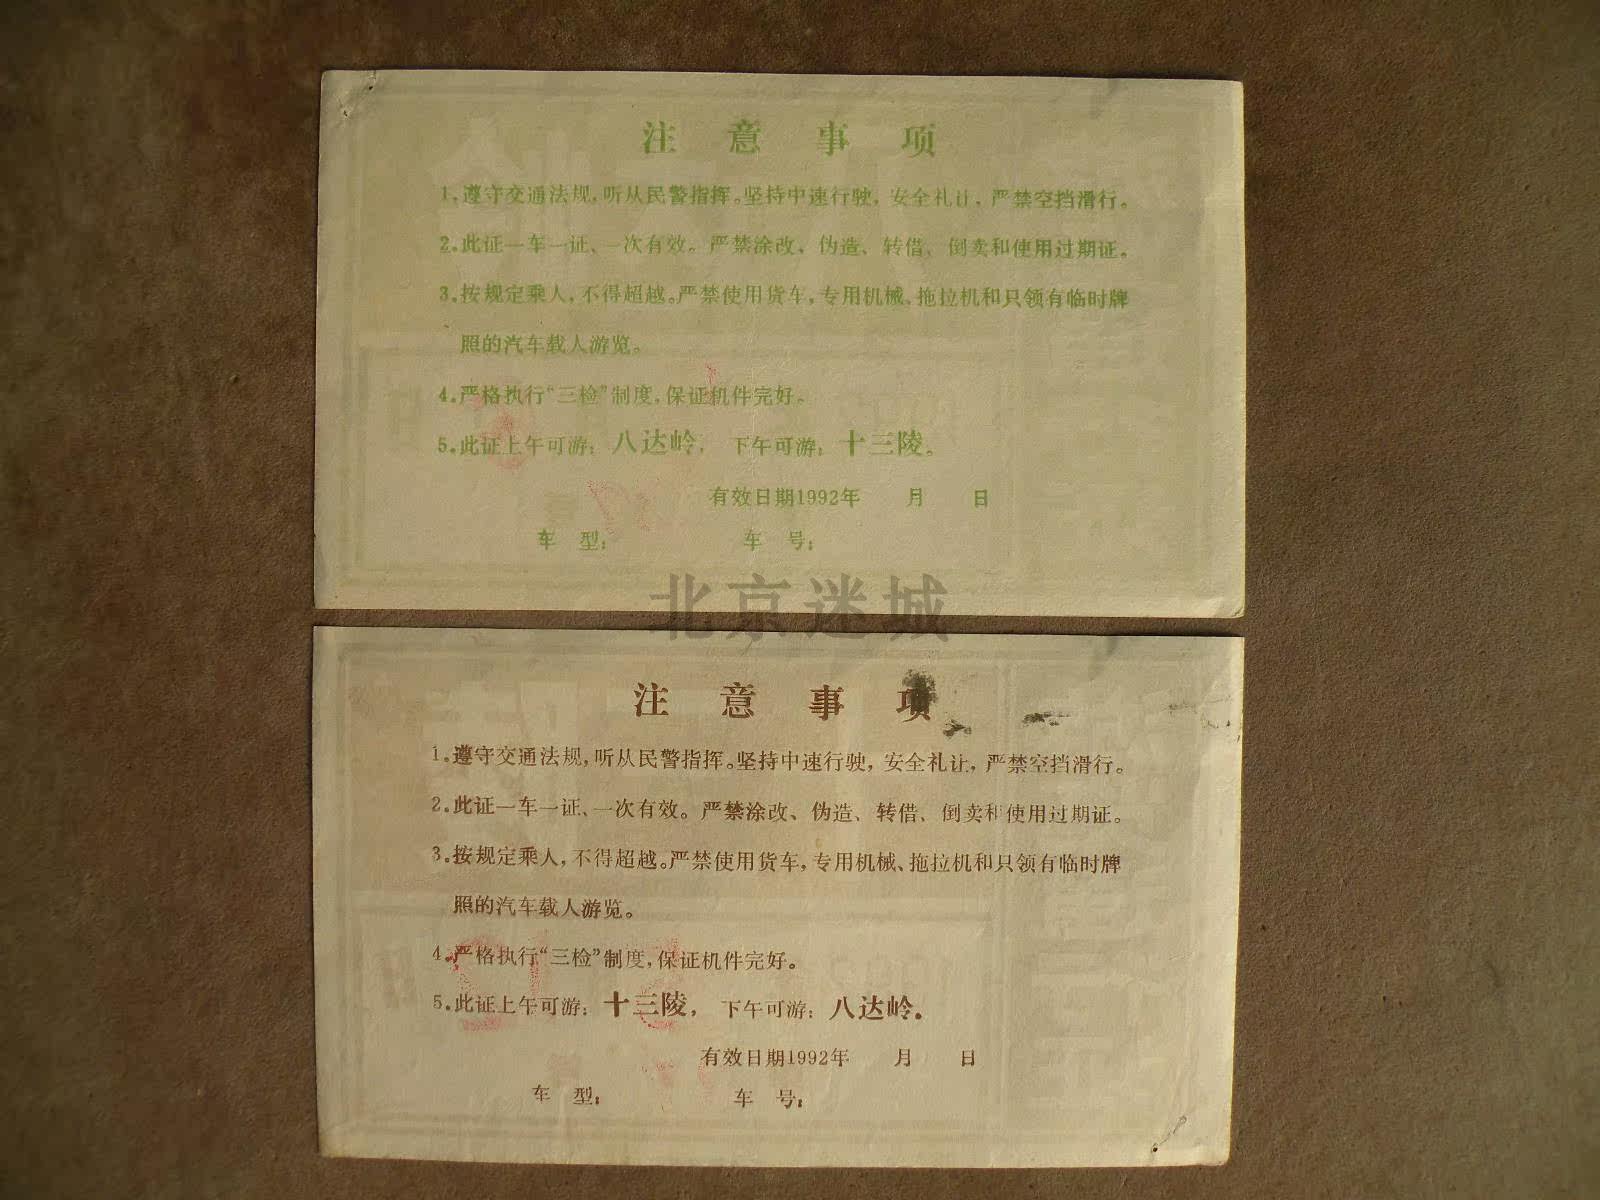 注意事项
1.遵守交通法规,听从民警指挥。坚持中速行驶,安全礼让,严禁空挡滑行。
2.此证一车一证、一次有效。严禁涂改、伪造、转借、倒卖和使用过期证。
3.按规定乘人,不得超越。严禁使用货车,专用机械、拖拉机和只领有临时牌
照的汽车载人游览。
4.严格执行“三检”制度,保证机件完好。
5.此证上午可游:八达岭,下午可游:十三陵。
有效日期1992年 月 日
车 型: 车 号:
北京迷城
注意事项
1.遵守交通法规,听从民警指挥。坚持中速行驶,安全礼让,严禁空挡滑行。
2.此证一车一证、一次有效。严禁涂改、伪造、转借、倒卖和使用过期证。
3.按规定乘人,不得超越。严禁使用货车,专用机械、拖拉机和只领有临时牌
照的汽车载人游览。
4.严格执行“三检”制度,保证机件完好。
5.此证上午可游:十三陵,下午可游:八达岭。
有效日期1992年 月 日
车 型: 车 号: